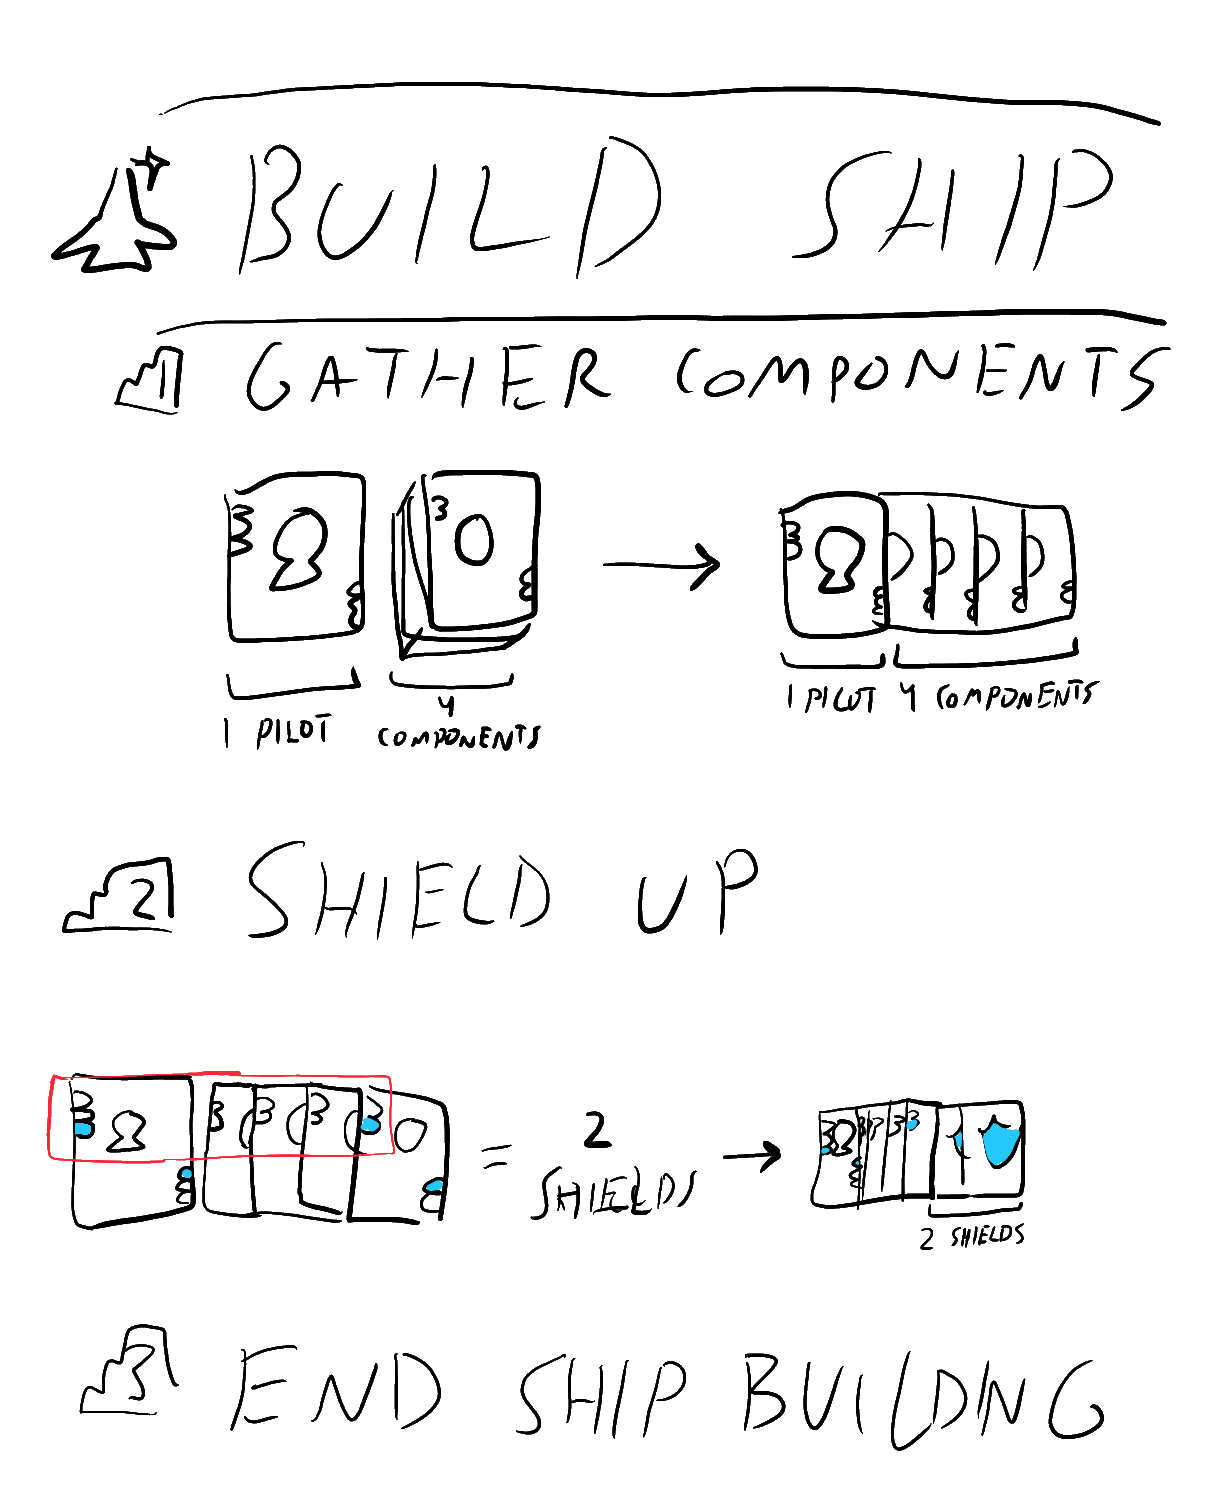 BUILD SHIP
1 GATHER COMPONENTS
3
1 PILOT
4
COMPONENTS
1 PILOT 4 COMPONENTS
2 SHIELD UP
3 3 3 3
= 2
SHIELDS
2 SHIELDS
3 END SHIP BUILDING